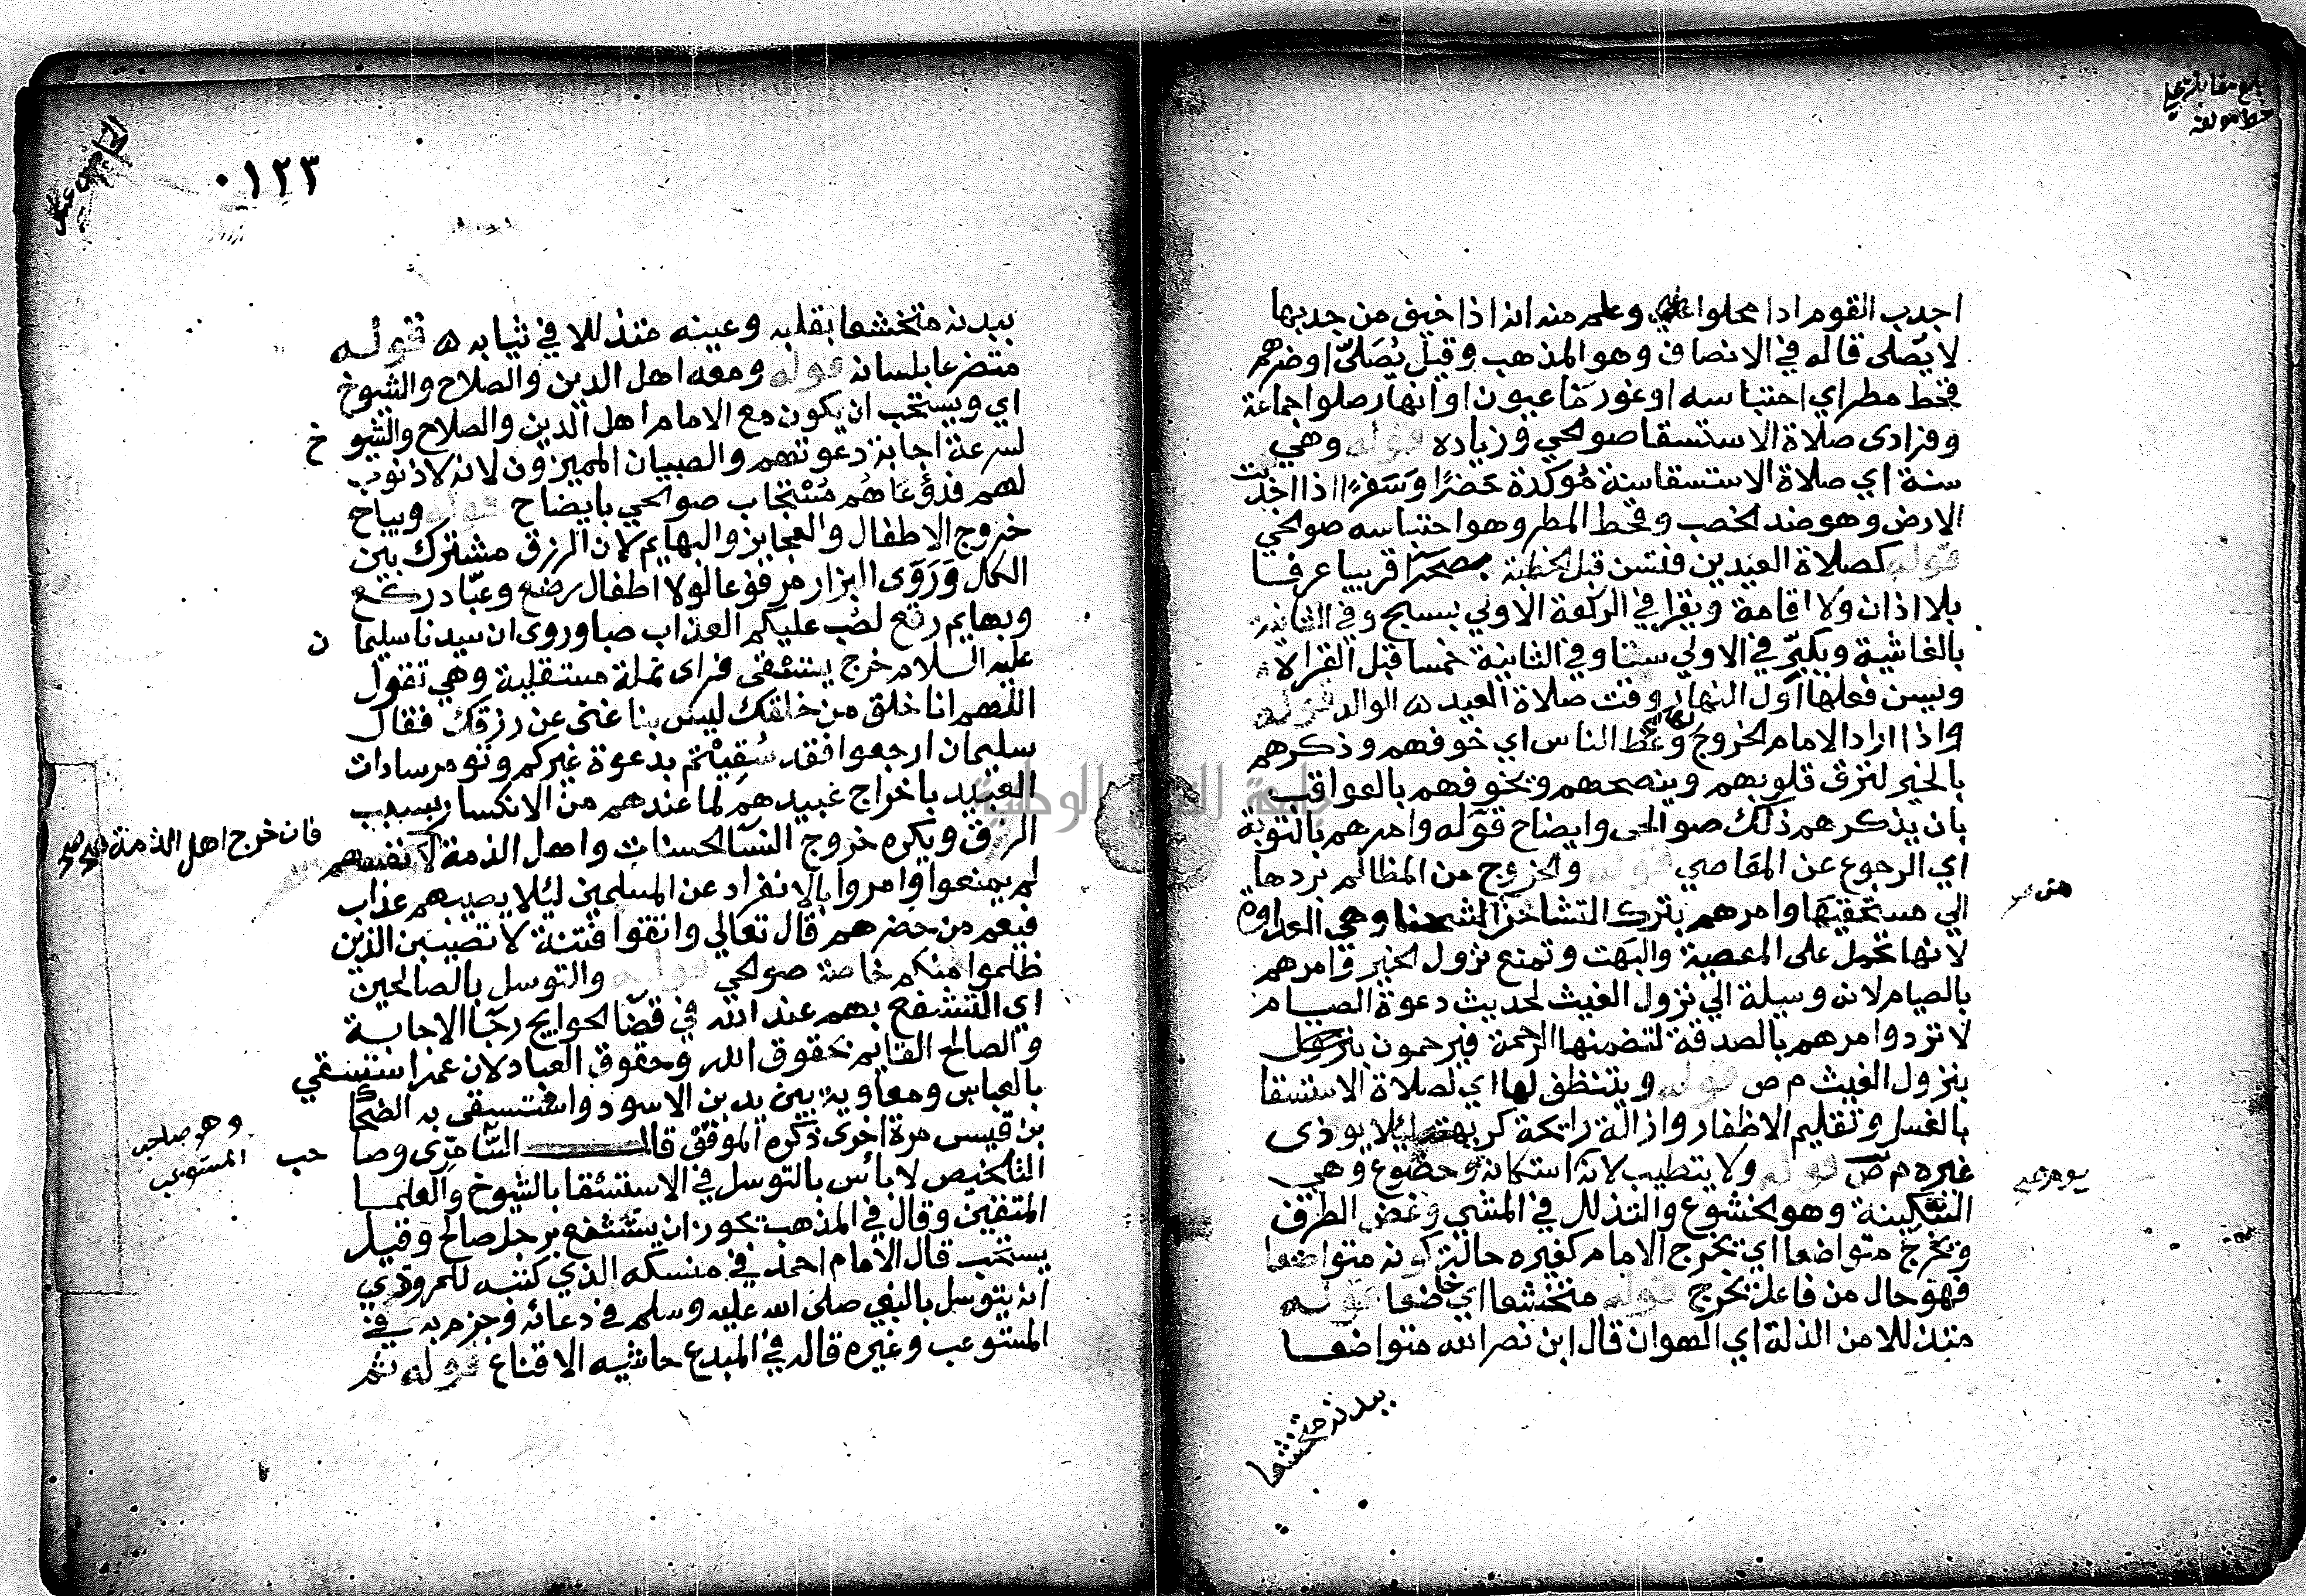 بلغ مقابلة على
خط مولفه
اجدب القوم اذا محلوا وعلم منه انه اذا خيف من جدبها
لا يُصلى قاله في الانصاف وهو المذهب وقيل يُصَلىّ اوضرهم
قحط مطر اي احتباسه او غور ماء عيون او انهار صلوا جماعة
وفرادى صلاة الاستسقا صوالحي وزياده قوله وهي
سنة اي صلاة الاستسقا سنة مُوكدة حَضرًا وَسَفرًا اذا اجدبت
الارض وهو ضد الخصب وقحط المطر وهو احتباسه صوالحي
قوله كصلاة العيدين فتسن قبل الخطبة بصحرا قريبا عرفا
بلا اذان ولا اقامة ويقرا في الركعة الاولي بسبح وفي الثانية
بالغاشية ويكبّر في الاولي ستا وفي الثانية خمسا قبل القراة
ويسن فعلها اول النهار وقت صلاة العيد ه الوالد قوله
واذا اراد الامام الخروج لها وعظ الناس اي خوفهم وذكرهم
بالخير لترق قلوبهم وينصحهم ويخوفهم بالعواقب
بان يذكرهم ذلك صوالحى وايضاح قوله وامرهم بالتوبة
اي الرجوع عن المعاصي قوله والخروج من المظالم بردها
الي مستحقيها وامرهم بترك التشاحن الشحنا وهي العداوة
لانها تحمل على المعصية والبهت وتمنع نزول الخير وامرهم
بالصيام لانه وسيلة الي نزول الغيث لحديث دعوة الصيام
لا ترد وامرهم بالصدقة لتضمنها الرحمة فيرحمون
بنزول الغيث م ص قوله ويتنظف لها اي لصلاة الاستسقا
بالغسل وتقليم الاظفار وازالة رايحة كريهة ليلا يوذى
غيره م ص قوله ولا يتطيب لانه استكانة وخضوع وهي
السكينة وهو الخشوع والتذلل في المشي وغض الطرف
ويخرج متواضعا اي يخرج الامام كغيره حالة كونه متواضعا
فهو حال من فاعل يخرج قوله متخشعا اي خاضعا قوله
متذللا من الذلة اي الهوان قال ابن نصر الله متواضعا
ببدنه متخشعا
٠١٢٣
ببدنه متخشعا بقلبه وعينه متذللا في ثيابه ه قوله
متضرعا بلسانه قوله ومعه اهل الدين والصلاح والشيوخ
اي ويستحب ان يكون مع الامام اهل الدين والصلاح والشيوخ
لسرعة اجابة دعوتهم والصبيان المميزون لانه لا ذنوب
لهم فدُعَاهُم مُسْتجاب صوالحي بايضاح قوله ويباح
خروج الاطفال والعجايز والبهايم لان الرزق مشترك بين
الكل وَرَوَى البزار مرفوعا لولا اطفال رضع وعبّاد ركع
وبهايم رتع لصُب عليكم العذاب صبا وروى ان سيدنا سليمان
عليه السلام خرج يستسقى فراى نملة مستقلبة وهي تقول
اللهم انا خلق من خلقك ليس بنا غنى عن رزقك فقال
سليمان ارجعوا فقد سُقِيْتم بدعوة غيركم وتومر سادات
العبيد باخراج عبيدهم لما عندهم من الانكسار بسبب
الرزق ويكره خروج النسآ الحسنات واهل الذمة لانفسهم
فان خرج اهل الذمة
لم يمنعوا وامروا بالانفراد عن المسلمين ليلا يصيبهم عذاب
فيعم من حضرهم قال تعالي واتقوا فتنة لا تصيبن الذين
ظلموا منكم خاصة صوالحي قوله والتوسل بالصالحين
اي التشفع بهم عند الله في قضا الحوايج رجا الاجابة
والصالح القايم بحقوق الله وحقوق العباد لان عمر استسقي
بالعباس ومعاوية بيزيد بن الاسود واستسقى به الضحاك
بن قيس مرة اخرى ذكره الموفق قال السَّامرِّى وصاحب
وهو صاحب
المستوعب
التلخيص لا بأس بالتوسل في الاستسقا بالشيوخ والعلما
المتقين وقال في المذهب يجوز ان يستشفع برجل صالح وقيل
يستحب قال الامام احمد في منسكه الذي كتبه للمروذي
انه يتوسل بالنبي صلى الله عليه وسلم في دعائه وجزم به في
المستوعب وغيره قاله في المبدع حاشيه الاقناع قوله ثم